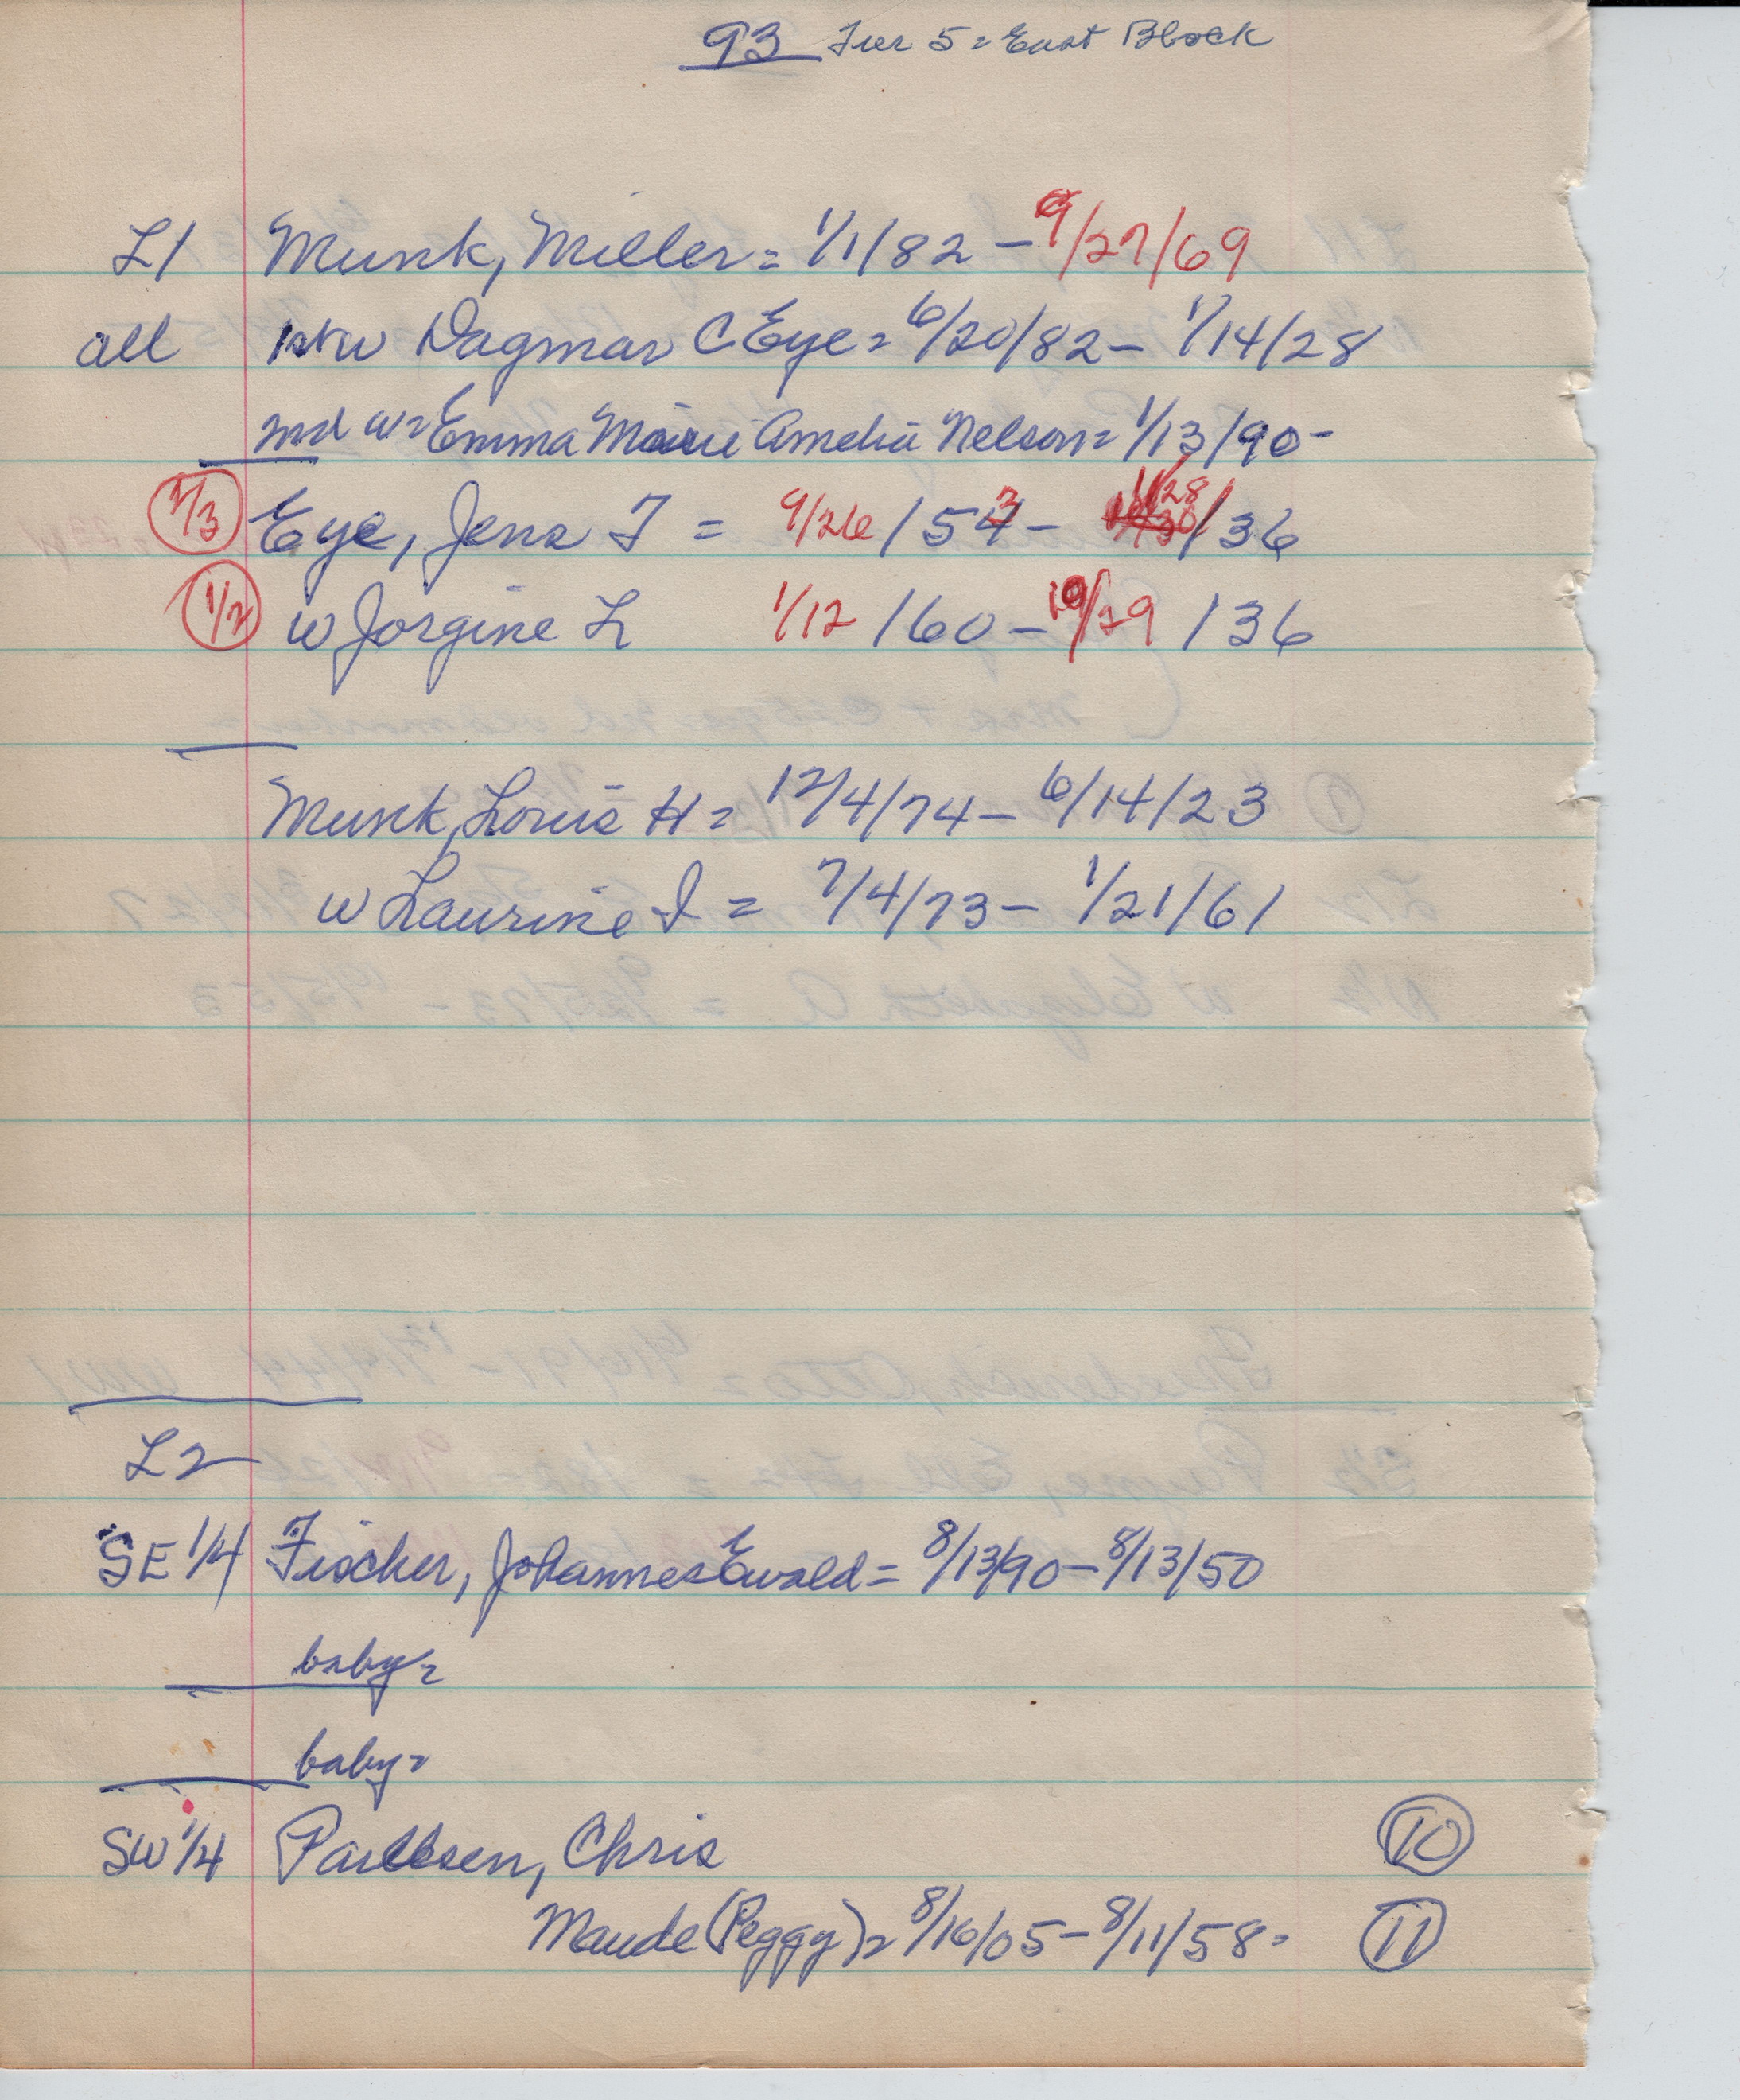 93 Tier 5 = East Block
L1 Munk, Miller = 1/1/82 - 9/27/69
all 1st w Dagmar C Eye = 6/20/82 - 1/14/28
2nd w = Emma Marie Amelia Nelson = 1/13/90 -
1/3 Eye, Jens J = 9/26/53 - 11/28/36
1/2 w Jorgine L 1/12/60 - 10/29/36
Munk, Louis H = 12/4/74 - 6/14/23
w Laurine I = 7/4/73 - 1/21/61
L2
SE 1/4 Fischer, Johannes Ewald = 8/13/90 - 8/13/50
baby =
baby =
SW 1/4 Paulsen, Chris 10
Maude (Peggy) = 8/16/05 - 8/11/58 = 11